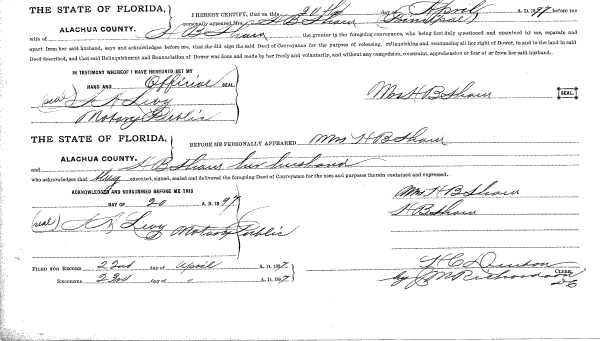 THE STATE OF FLORIDA,
ALACHUA COUNTY.
I HEREBY CERTIFY, that on this 20th day of April A. D. 1897 before me
personally appeared Mrs. H B Shaw (Principal)
wife of H B Shaw the grantor in the foregoing conveyance, who being first duly questioned and examined by me, separate and
apart from her said husband, says and acknowledges before me, that she did sign the said Deed of Conveyance for the purpose of releasing, relinquishing and renouncing all her right of Dower, in and to the land in said
Deed described, and that said Relinquishment and Renunciation of Dower was done and made by her freely and voluntarily, and without any compulsion, constraint, apprehension or fear of or from her said husband.
IN TESTIMONY WHEREOF I HAVE HEREUNTO SET MY
HAND AND Official SEAL.
(seal) Levy
Notary Public
Mrs H B Shaw SEAL.
THE STATE OF FLORIDA,
ALACHUA COUNTY.
BEFORE ME PERSONALLY APPEARED Mrs H B Shaw
and H B Shaw her husband
who acknowledges that they executed, signed, sealed and delivered the foregoing Deed of Conveyance for the uses and purposes therein contained and expressed.
ACKNOWLEDGED AND SUBSCRIBED BEFORE ME THIS
DAY OF 20 A. D. 1897
(seal) Levy Notary Public
Mrs H B Shaw
H B Shaw
FILED FOR RECORD 22nd day of April A. D. 1897
RECORDED 23rd day of " A. D. 1897
H C Denton CLERK.
by J M Richardson D C